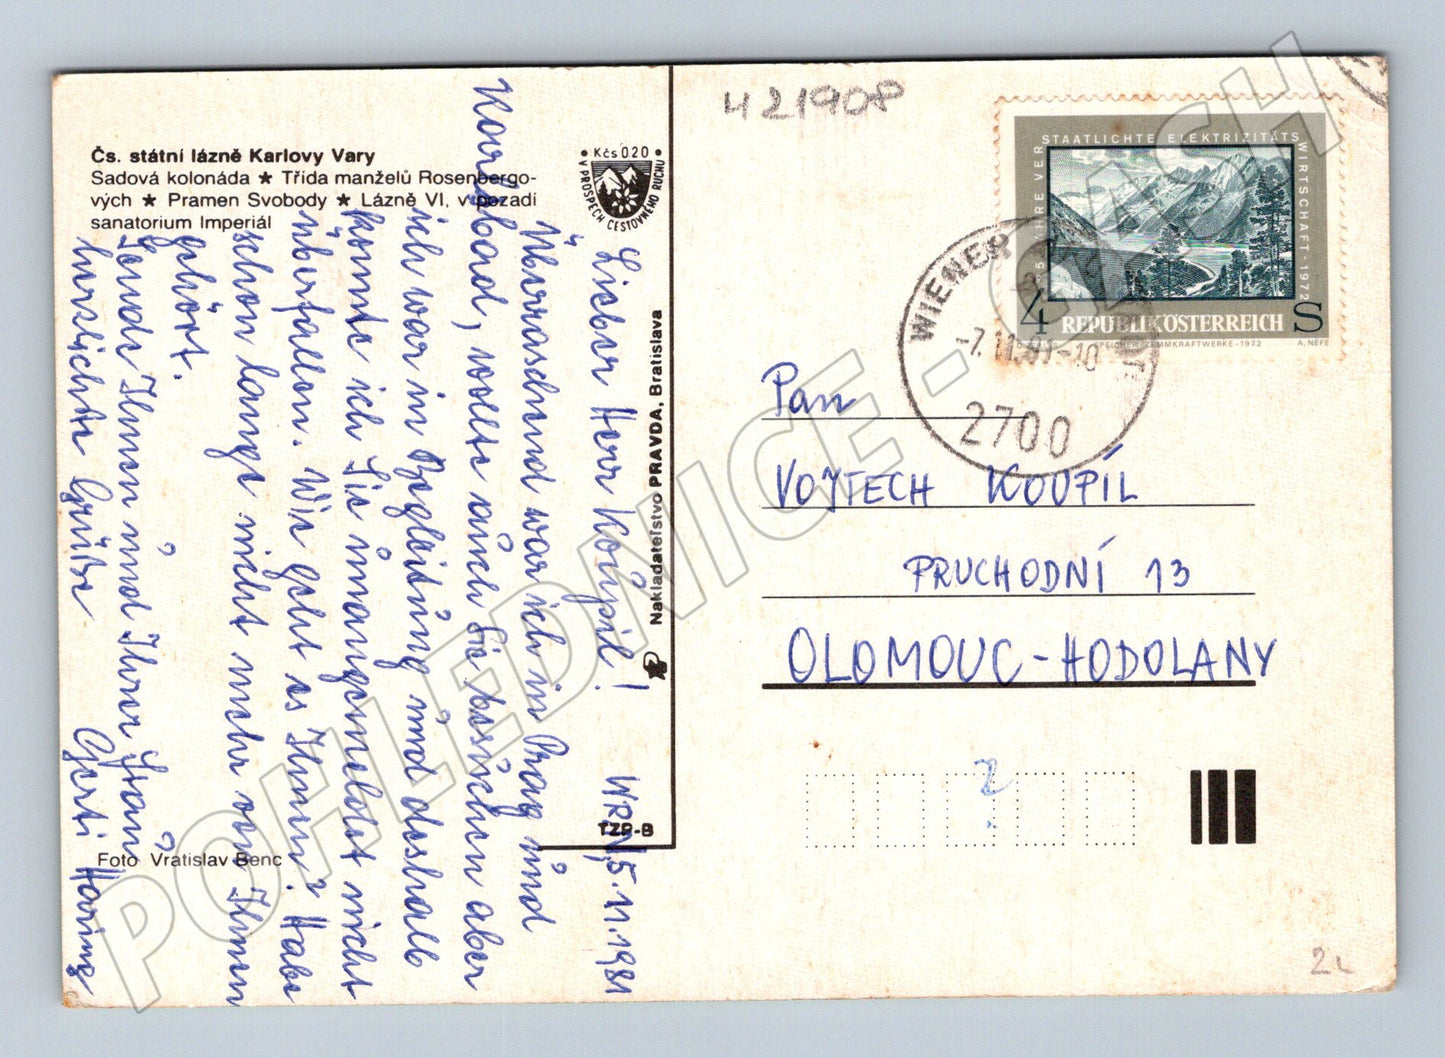 Čs. státní lázně Karlovy Vary
Sadová kolonáda ★ Třída manželů Rosenbergo-
vých ★ Pramen Svobody ★ Lázně VI, v pozadí
sanatorium Imperiál
• Kčs 0.20 •
V PROSPĚCH CESTOVNÉHO RUCHU
WRN, 5.11.1981
Lieber Herr Koúpil!
Überraschend war ich in Prag und
Karlsbad, wollte auch Sie besuchen aber
ich war in Begleitung und deshalb
konnte ich Sie unangemeldet nicht
überfallen. Wie geht es Ihnen? Habe
schon lange nicht mehr von Ihnen
gehört.
Sende Ihnen und Ihrer Frau
herzlichste Grüße
Gerti Haring
Foto Vratislav Benc
Nakladateľstvo PRAVDA, Bratislava
TZP-B
421908
STAATLICHTE ELEKTRIZITÄTS
WIRTSCHAFT · 1972
4 REPUBLIK ÖSTERREICH S
SPEICHER ZEMMKRAFTWERKE - 1972
A. NEFE
WIENER
-7.11.81-10
2700
Pan
VOJTECH KOUPÍL
PRUCHODNÍ 13
OLOMOUC - HODOLANY
POHLEDNICE - CASH